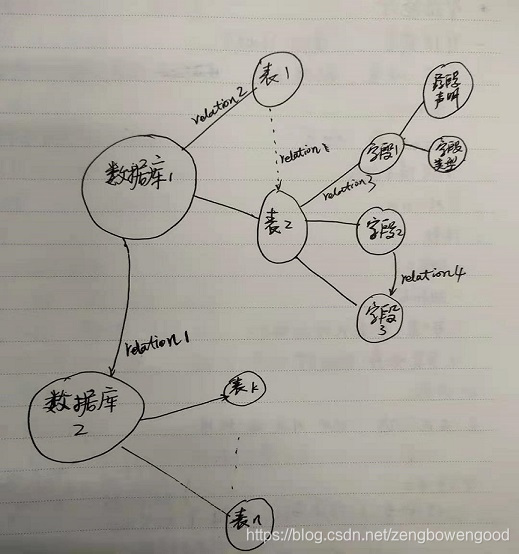 表1
relation2
字段
声明
数据库1
relation1
字段1
字段
类型
relation3
表2
字段2
relation4
字段
3
relation1
数据库
2
表k
表n
https://blog.csdn.net/zengbowengood